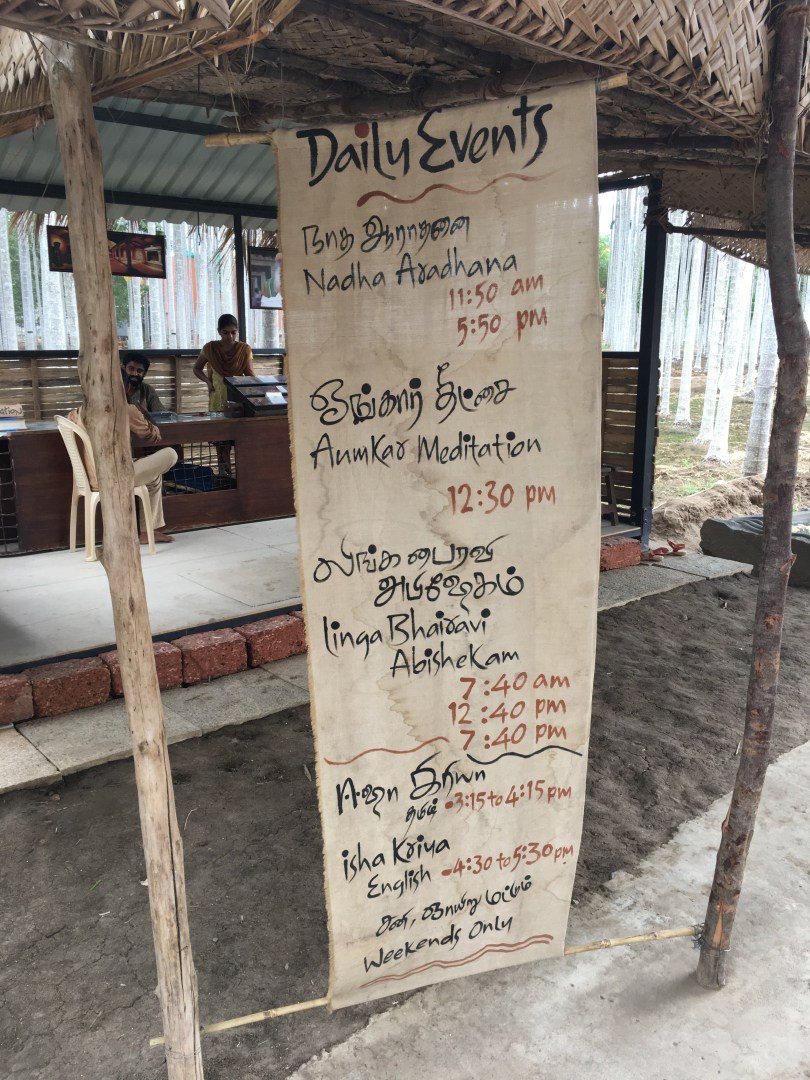 Daily Events
நாத ஆராதனை
Nadha Aradhana
11:50 am
5:50 pm
ஓங்கார் தீட்சை
AumKar Meditation
12:30 pm
லிங்க பைரவி
அபிஷேகம்
linga Bhairavi
Abishekam
7:40 am
12:40 pm
7:40 pm
ஈஷா கிரியா
தமிழ் -3:15 to 4:15 pm
isha Kriya
English -4:30 to 5:30 pm
சனி, ஞாயிறு மட்டும்
Weekends Only